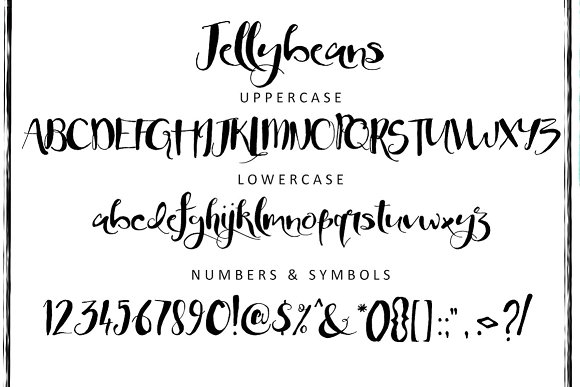 Jellybeans
UPPERCASE
ABCDEFGHIJKLMNOPQRSTUVWXYZ
LOWERCASE
abcdefghijklmnopqrstuvwxyz
NUMBERS & SYMBOLS
1234567890!@$%^&*(){}[]:;",.<>?/